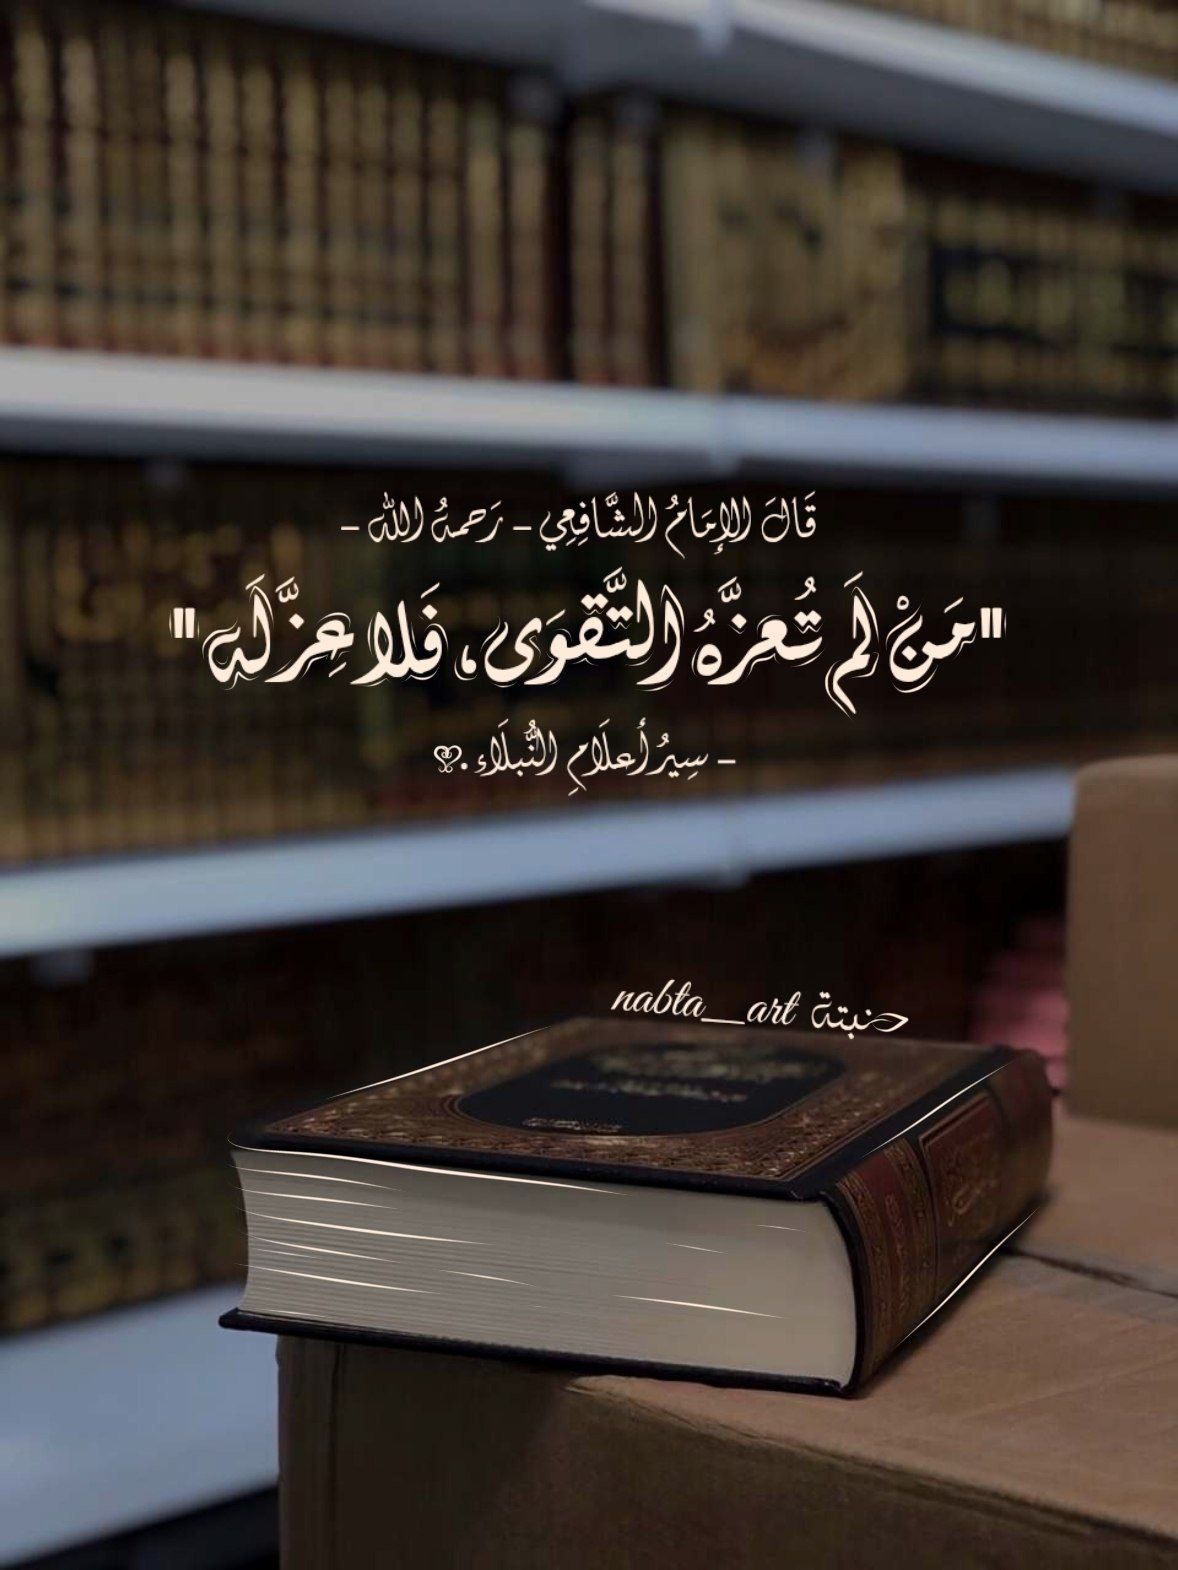 قَالَ الإِمَامُ الشَّافِعِي - رَحمهُ اللّٰه -
"مَنْ لَم تُعزَّهُ التَّقوَى، فَلا عِزَّلَه"
- سِيرُ أعلَامِ النُّبلَاء.
nabta_art نبتة